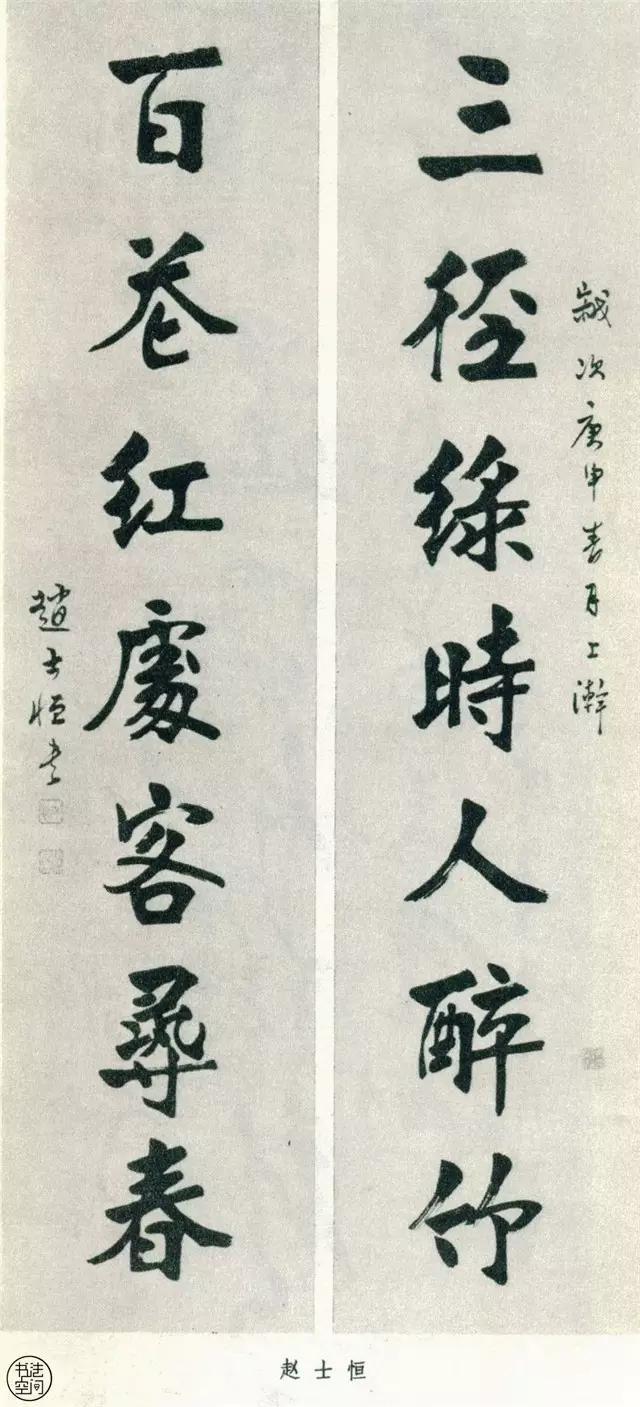 歲次庚申春月上澣
三徑綠時人醉竹
百花紅處客尋春
趙士恒書
赵士恒
书法空间